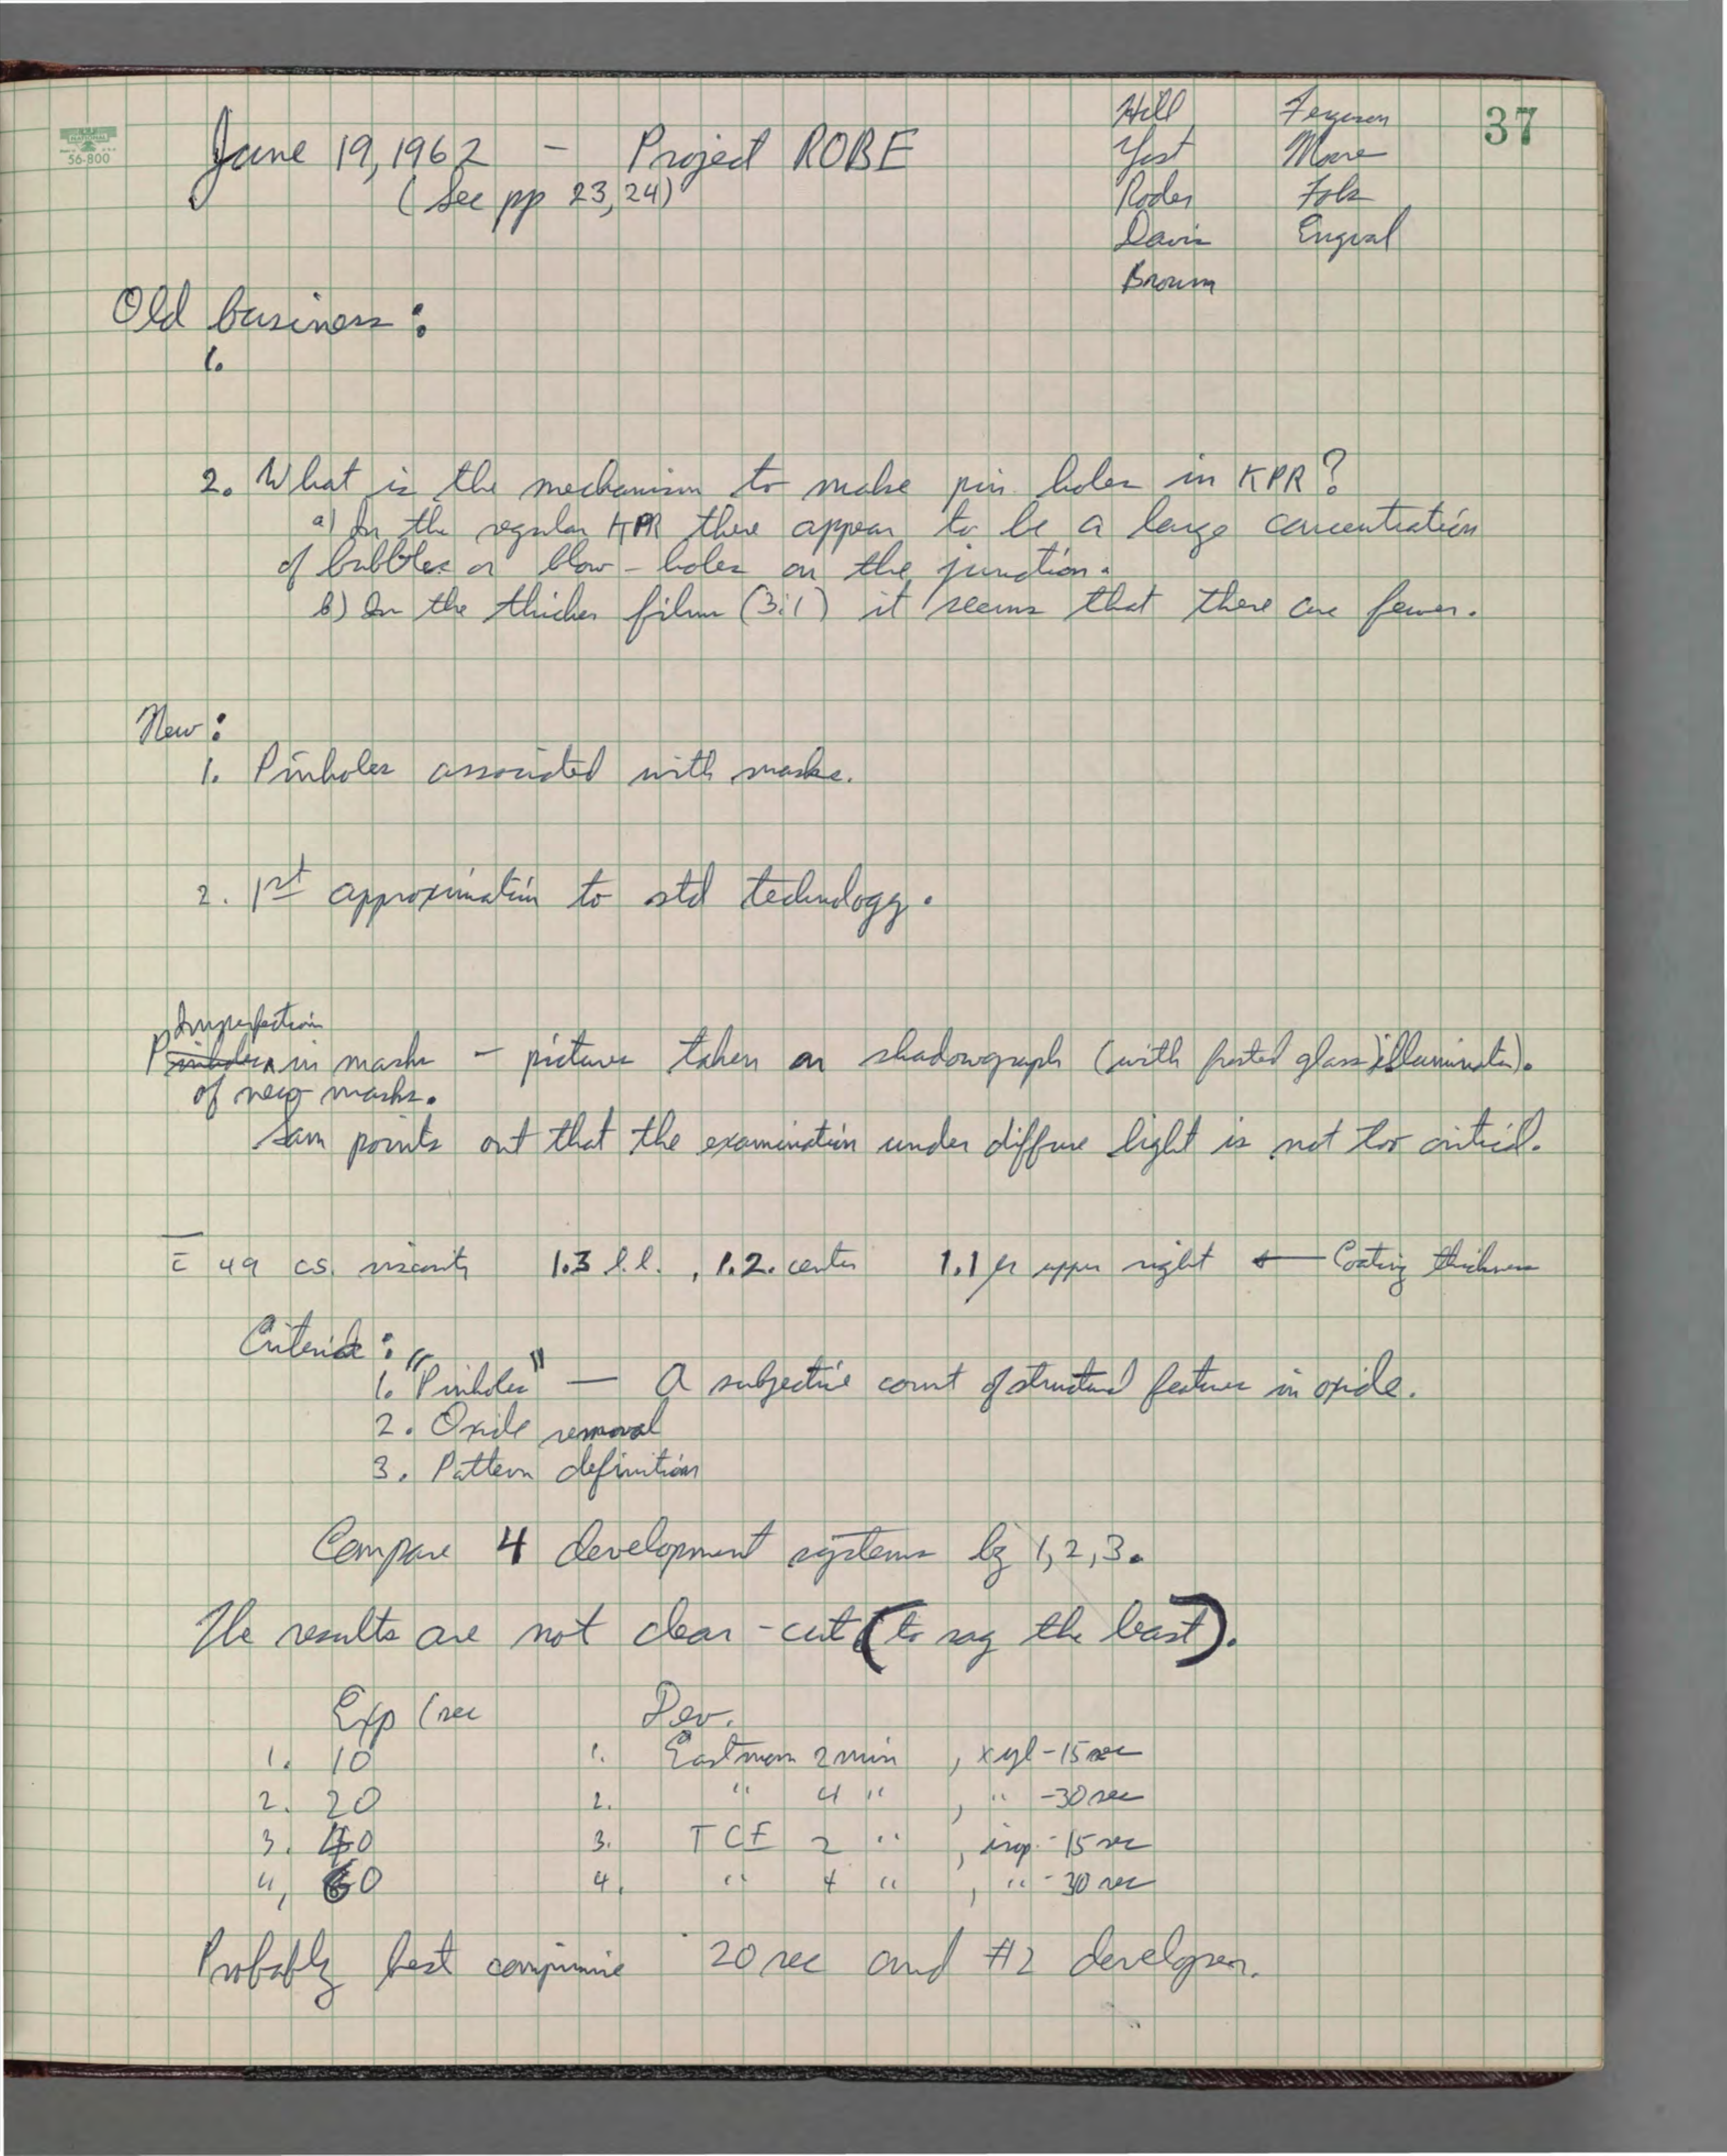 37
56-800
June 19, 1962 - Project ROBE
(See pp 23, 24)
Hill Ferguson
Yost Moore
Roder Folz
Davis Engval
Brown
Old business:
1.
2. What is the mechanism to make pin holes in KPR?
a) In the regular KPR there appear to be a large concentration
of bubbles or blow-holes on the junction.
b) In the thicker film (3:1) it seems that there are fewer.
New:
1. Pinholes associated with masks.
2. 1st approximation to std technology.
Imperfection
Pinholes in masks - pictures taken on shadowgraph (with frosted glass illuminator).
of new masks.
Sam points out that the examination under diffuse light is not too critical.
c̄ 49 cs. viscosity 1.3 l.l., 1.2. center 1.1 μ upper right ← Coating thickness
Criteria:
1. "Pinholes" — A subjective count of structural features in oxide.
2. Oxide removal
3. Pattern definition
Compare 4 development systems by 1, 2, 3.
The results are not clear-cut (to say the least).
Exp (sec Dev.
1. 10 1. Eastman 2 min, xyl - 15 sec
2. 20 2. " 4 ", " - 30 sec
3. 40 3. TCE 2 ", isop. - 15 sec
4, 60 4. " 4 ", " - 30 sec
Probably best compromise 20 sec and #2 developer.